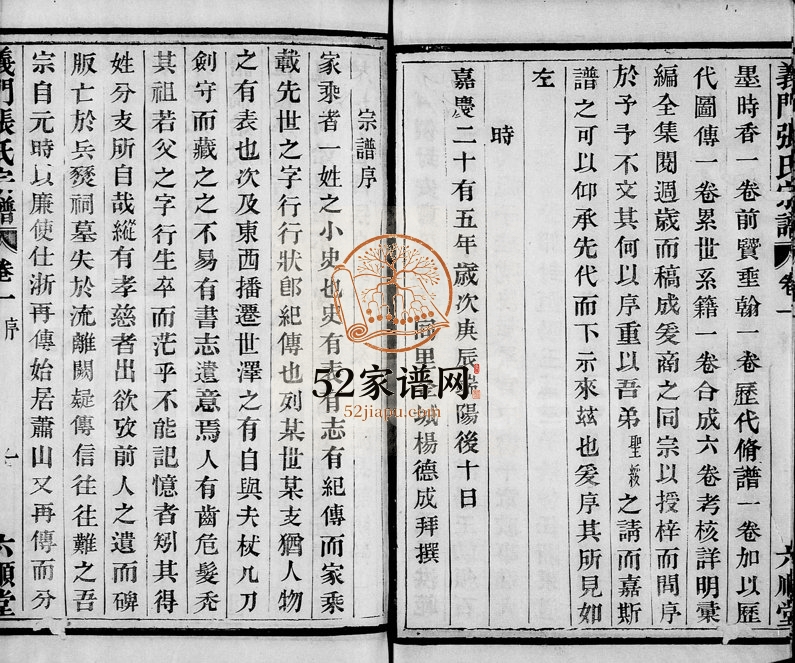 義門張氏宗譜 卷一 六順堂
墨時香一卷前賢垂翰一卷歷代脩譜一卷加以歷
代圖傳一卷累世系籍一卷合成六卷考核詳明彙
編全集閱週歲而稿成爰商之同宗以授梓而問序
於予予不文其何以序重以吾弟聖絞之請而嘉斯
譜之可以仰承先代而下示來玆也爰序其所見如
左
時
嘉慶二十有五年歲次庚辰端陽後十日
同里 城楊德成拜撰
宗譜序
家乘者一姓之小史也史有表有志有紀傳而家乘
載先世之字行行狀卽紀傳也列某世某支猶人物
之有表也次及東西播遷世澤之有自與夫杖几刀
劍守而藏之之不易有書志遺意焉人有齒危髮禿
其祖若父之字行生卒而茫乎不能記憶者矧其得
姓分支所自哉縱有孝慈者出欲攷前人之遺而碑
版亡於兵燹祠墓失於流離闕疑傳信往往難之吾
宗自元時以廉使仕浙再傳始居蕭山又再傳而分
義門張氏宗譜 卷一 序 七 六順堂
52家谱网
52jiapu.com